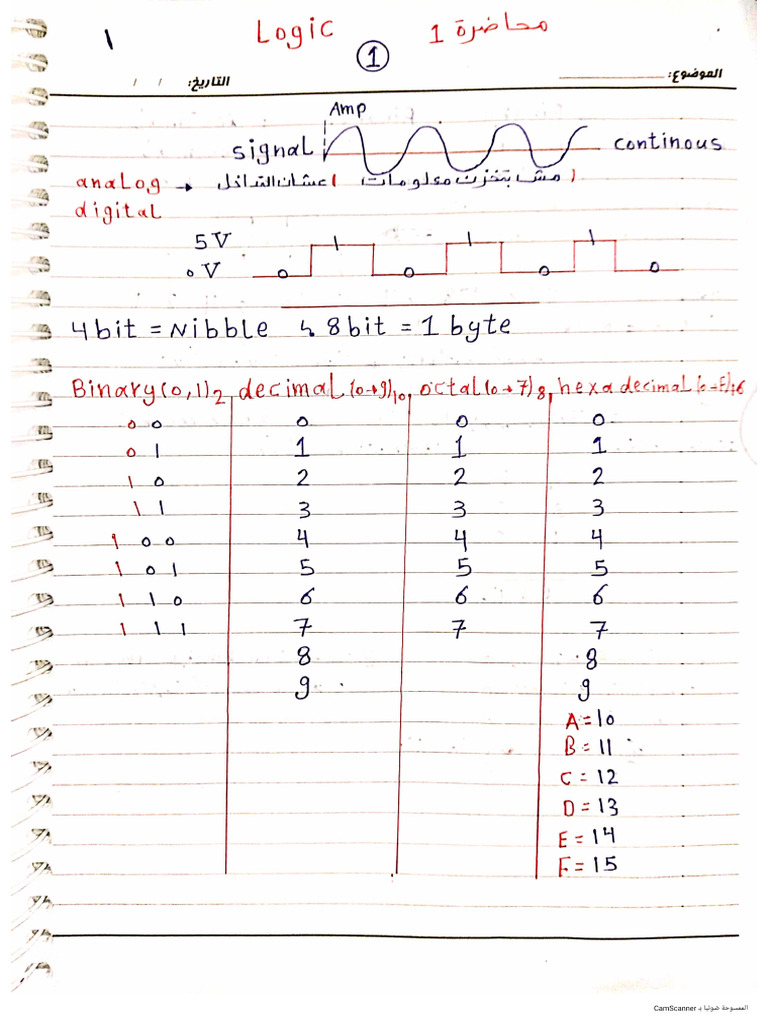 ١ Logic محاضرة 1
1
الموضوع: التاريخ: / /
Amp
signal continous
analog → مش بتخزن معلومات ( عشان التداخل )
digital
5V 1 1 1
0V 0 0 0 0
4 bit = Nibble ↳ 8 bit = 1 byte
Binary (0,1)2, decimal (0→9)10, octal (0→7)8, hexa decimal (0-F)16
0 0 0 0 0
0 1 1 1 1
1 0 2 2 2
1 1 3 3 3
1 0 0 4 4 4
1 0 1 5 5 5
1 1 0 6 6 6
1 1 1 7 7 7
8 8
9 9
A = 10
B = 11
C = 12
D = 13
E = 14
F = 15
الممسوحة ضوئيا بـ CamScanner